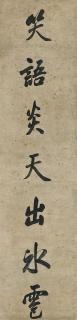 笑語炎天出氷雹